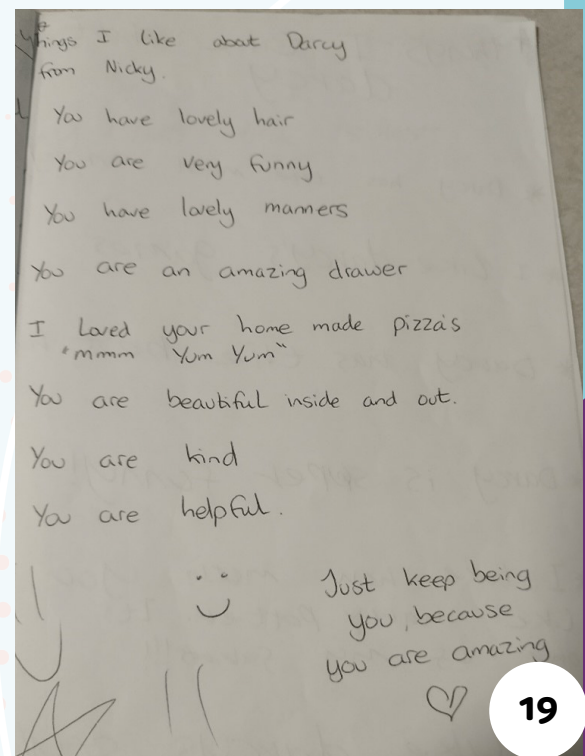 Things I like about Darcy
from Nicky.
You have lovely hair
You are very funny
You have lovely manners
You are an amazing drawer
I Loved your home made pizza's
"mmm Yum Yum"
You are beautiful inside and out.
You are kind
You are helpful.
Just keep being
you, because
you are amazing
19